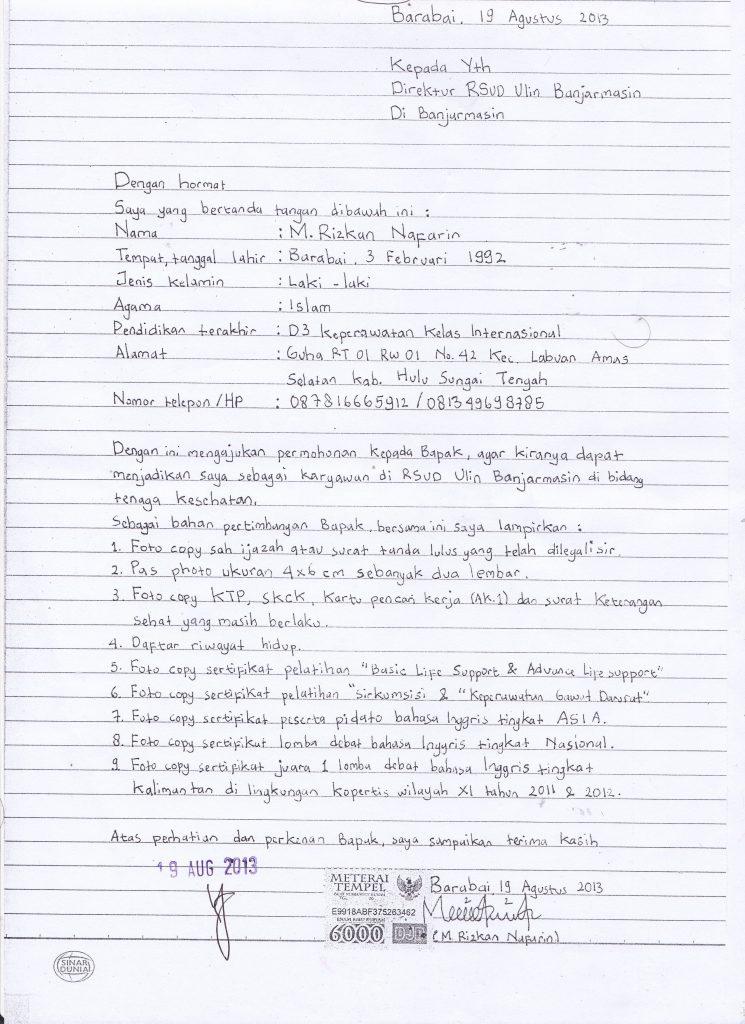 Barabai, 19 Agustus 2013
Kepada Yth
Direktur RSUD Ulin Banjarmasin
Di Banjarmasin
Dengan hormat
Saya yang bertanda tangan dibawah ini :
Nama : M. Rizkan Nafarin
Tempat, tanggal lahir : Barabai, 3 Februari 1992
Jenis kelamin : Laki - laki
Agama : Islam
Pendidikan terakhir : D3 Keperawatan Kelas Internasional
Alamat : Guha RT 01 RW 01 No. 42 Kec. Labuan Amas
Selatan Kab. Hulu Sungai Tengah
Nomor telepon / HP : 087816665912 / 081349698785
Dengan ini mengajukan permohonan kepada Bapak, agar kiranya dapat
menjadikan saya sebagai karyawan di RSUD Ulin Banjarmasin di bidang
tenaga kesehatan.
Sebagai bahan pertimbangan Bapak, bersama ini saya lampirkan :
1. Foto copy sah ijazah atau surat tanda lulus yang telah dilegalisir.
2. Pas photo ukuran 4x6 cm sebanyak dua lembar.
3. Foto copy KTP, SKCK, Kartu pencari kerja (AK.1) dan surat keterangan
sehat yang masih berlaku.
4. Daftar riwayat hidup.
5. Foto copy sertifikat pelatihan "Basic Life Support & Advance Life support"
6. Foto copy sertifikat pelatihan "Sirkumsisi & "Keperawatan Gawat Darurat"
7. Foto copy sertifikat peserta pidato bahasa Inggris tingkat ASIA.
8. Foto copy sertifikat lomba debat bahasa Inggris tingkat Nasional.
9 Foto copy sertifikat juara 1 lomba debat bahasa Inggris tingkat
Kalimantan di lingkungan kopertis wilayah XI tahun 2011 & 2012.
Atas perhatian dan perkenan Bapak, saya sampaikan terima kasih
19 AUG 2013
METERAI
TEMPEL
Barabai, 19 Agustus 2013
E9918ABF375263462
6000 DJP
(M Rizkan Nafarin)
SINAR
DUNIA